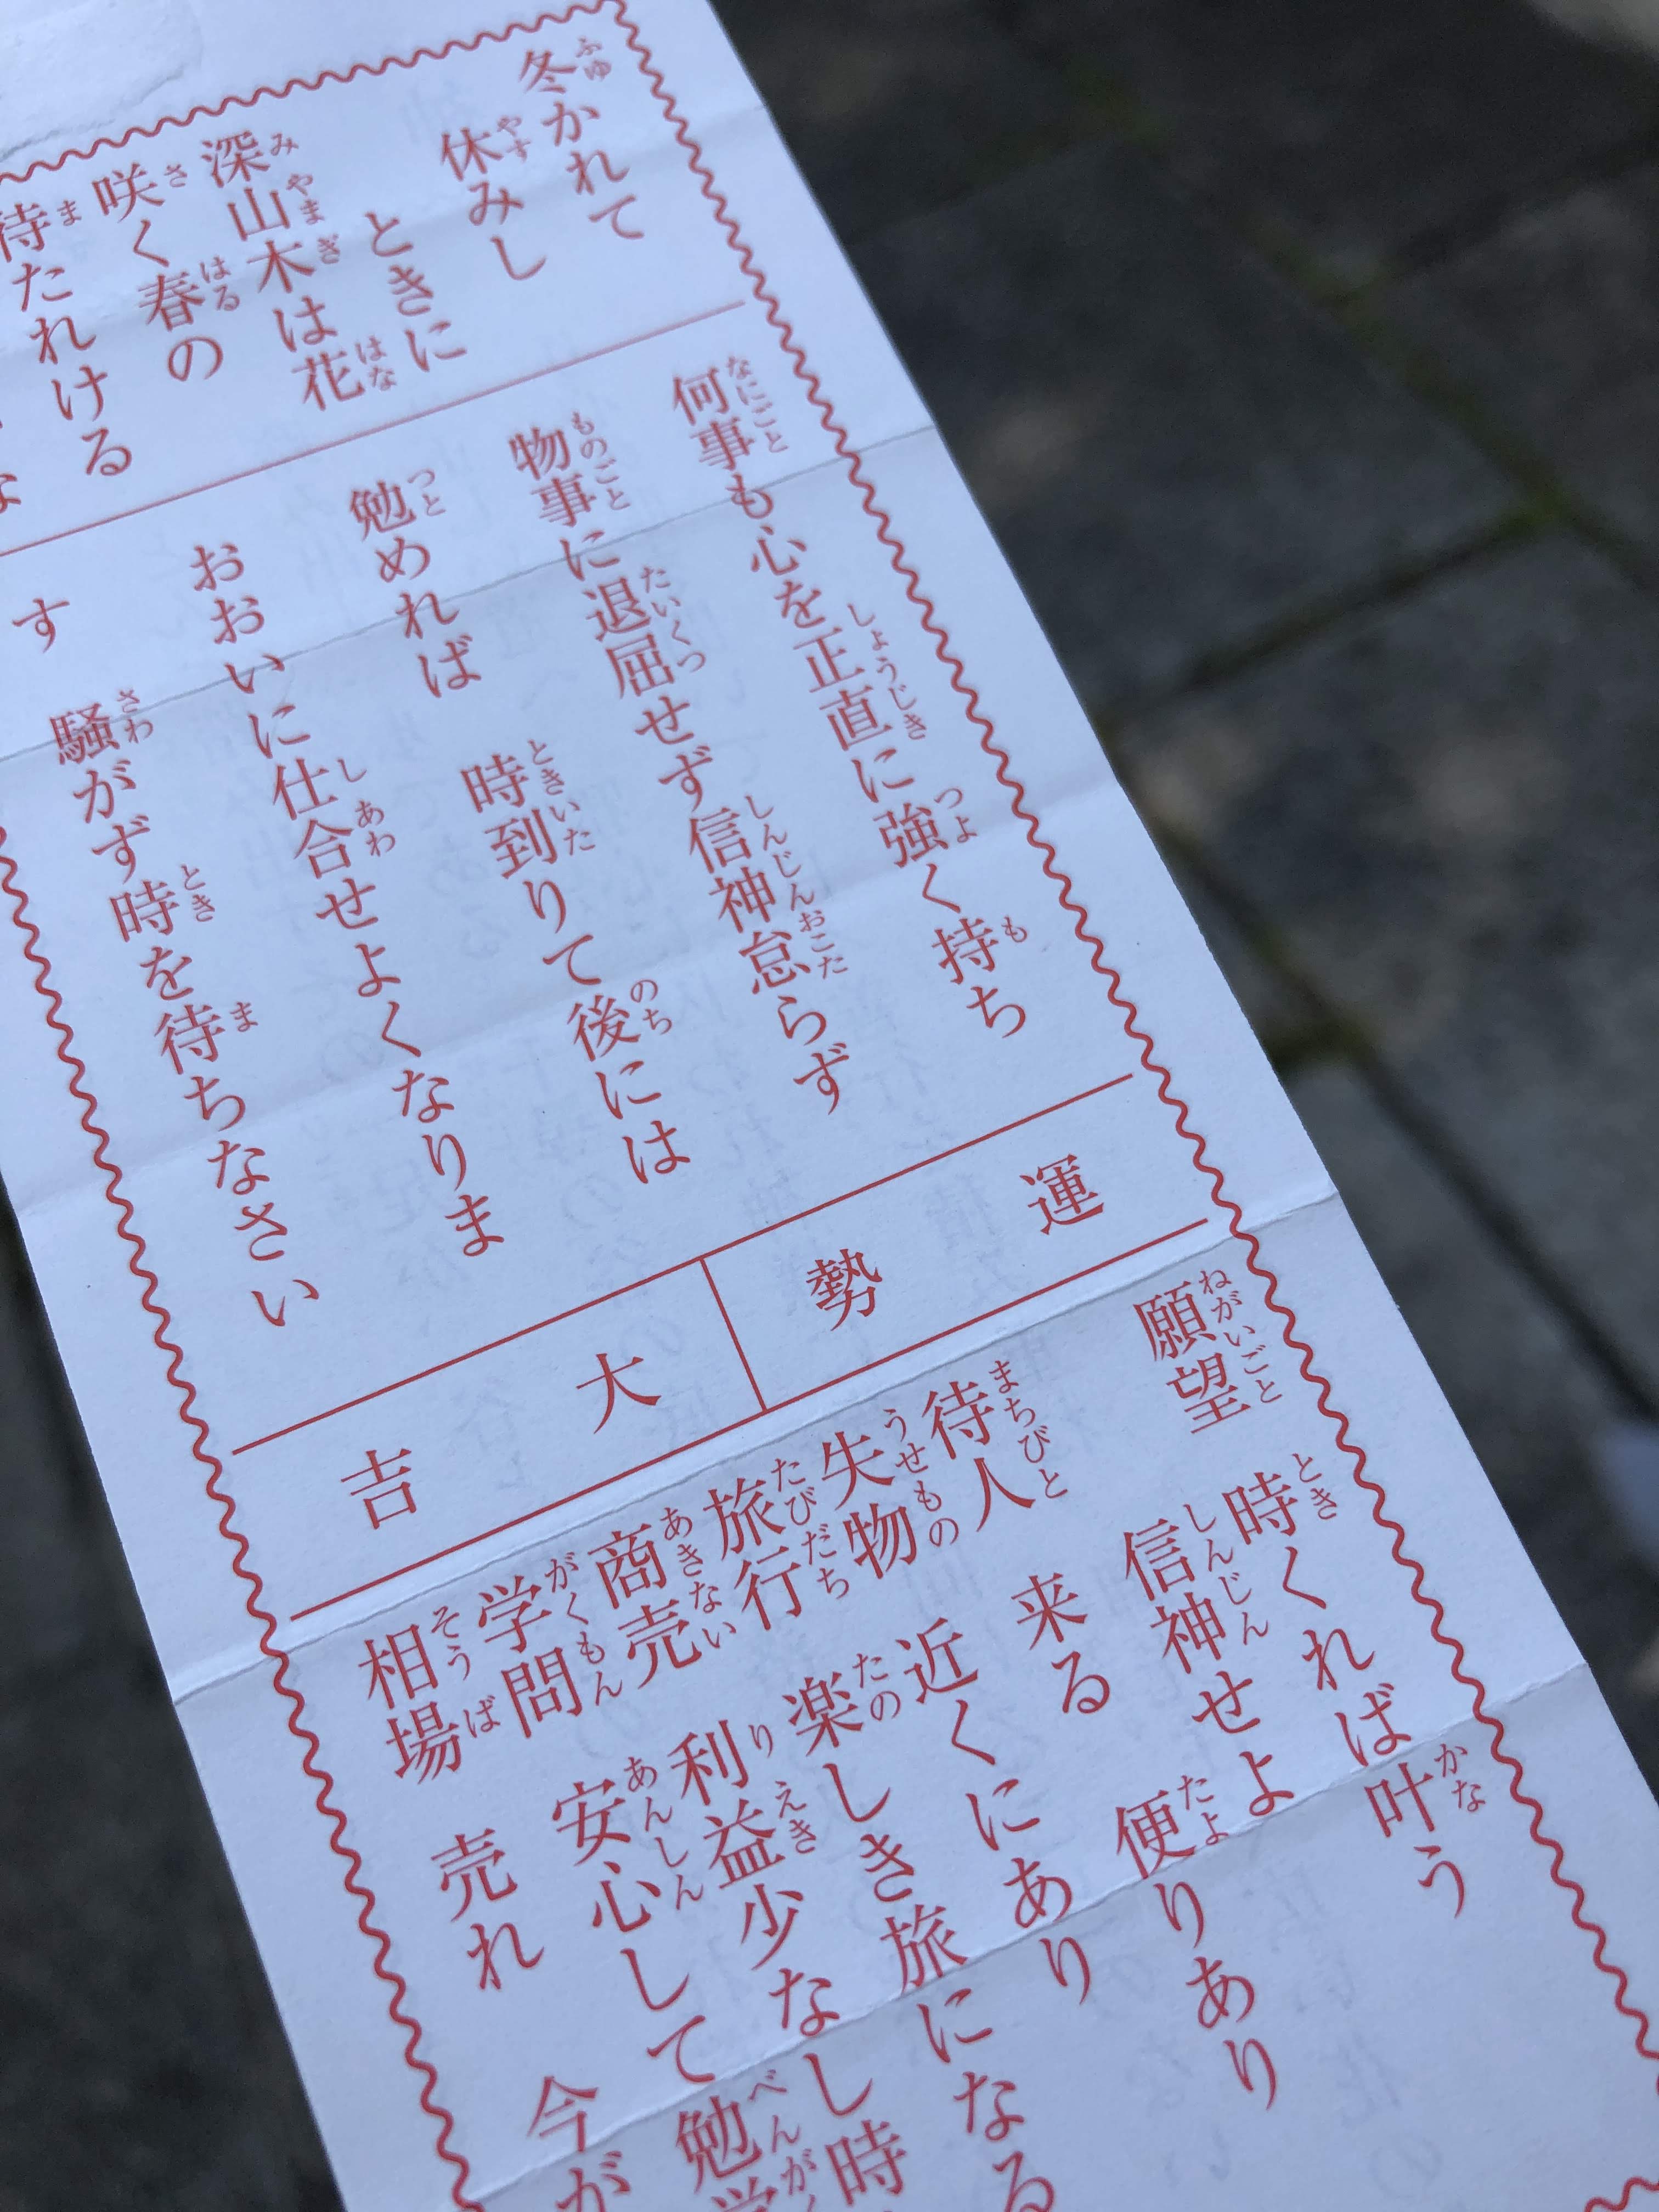 冬かれて
休みし
ときに
深山木は花
咲く春の
待たれける
な
何事も心を正直に強く持ち
物事に退屈せず信神怠らず
勉めれば 時到りて後には
おおいに仕合せよくなりま
す
騒がず時を待ちなさい
運勢
大吉
願望 時くれば叶う
信神せよ
待人 来る 便りあり
失物 近くにあり
旅行 楽しき旅になる
商売 利益少なし時
学問 安心して勉学
相場 売れ 今が